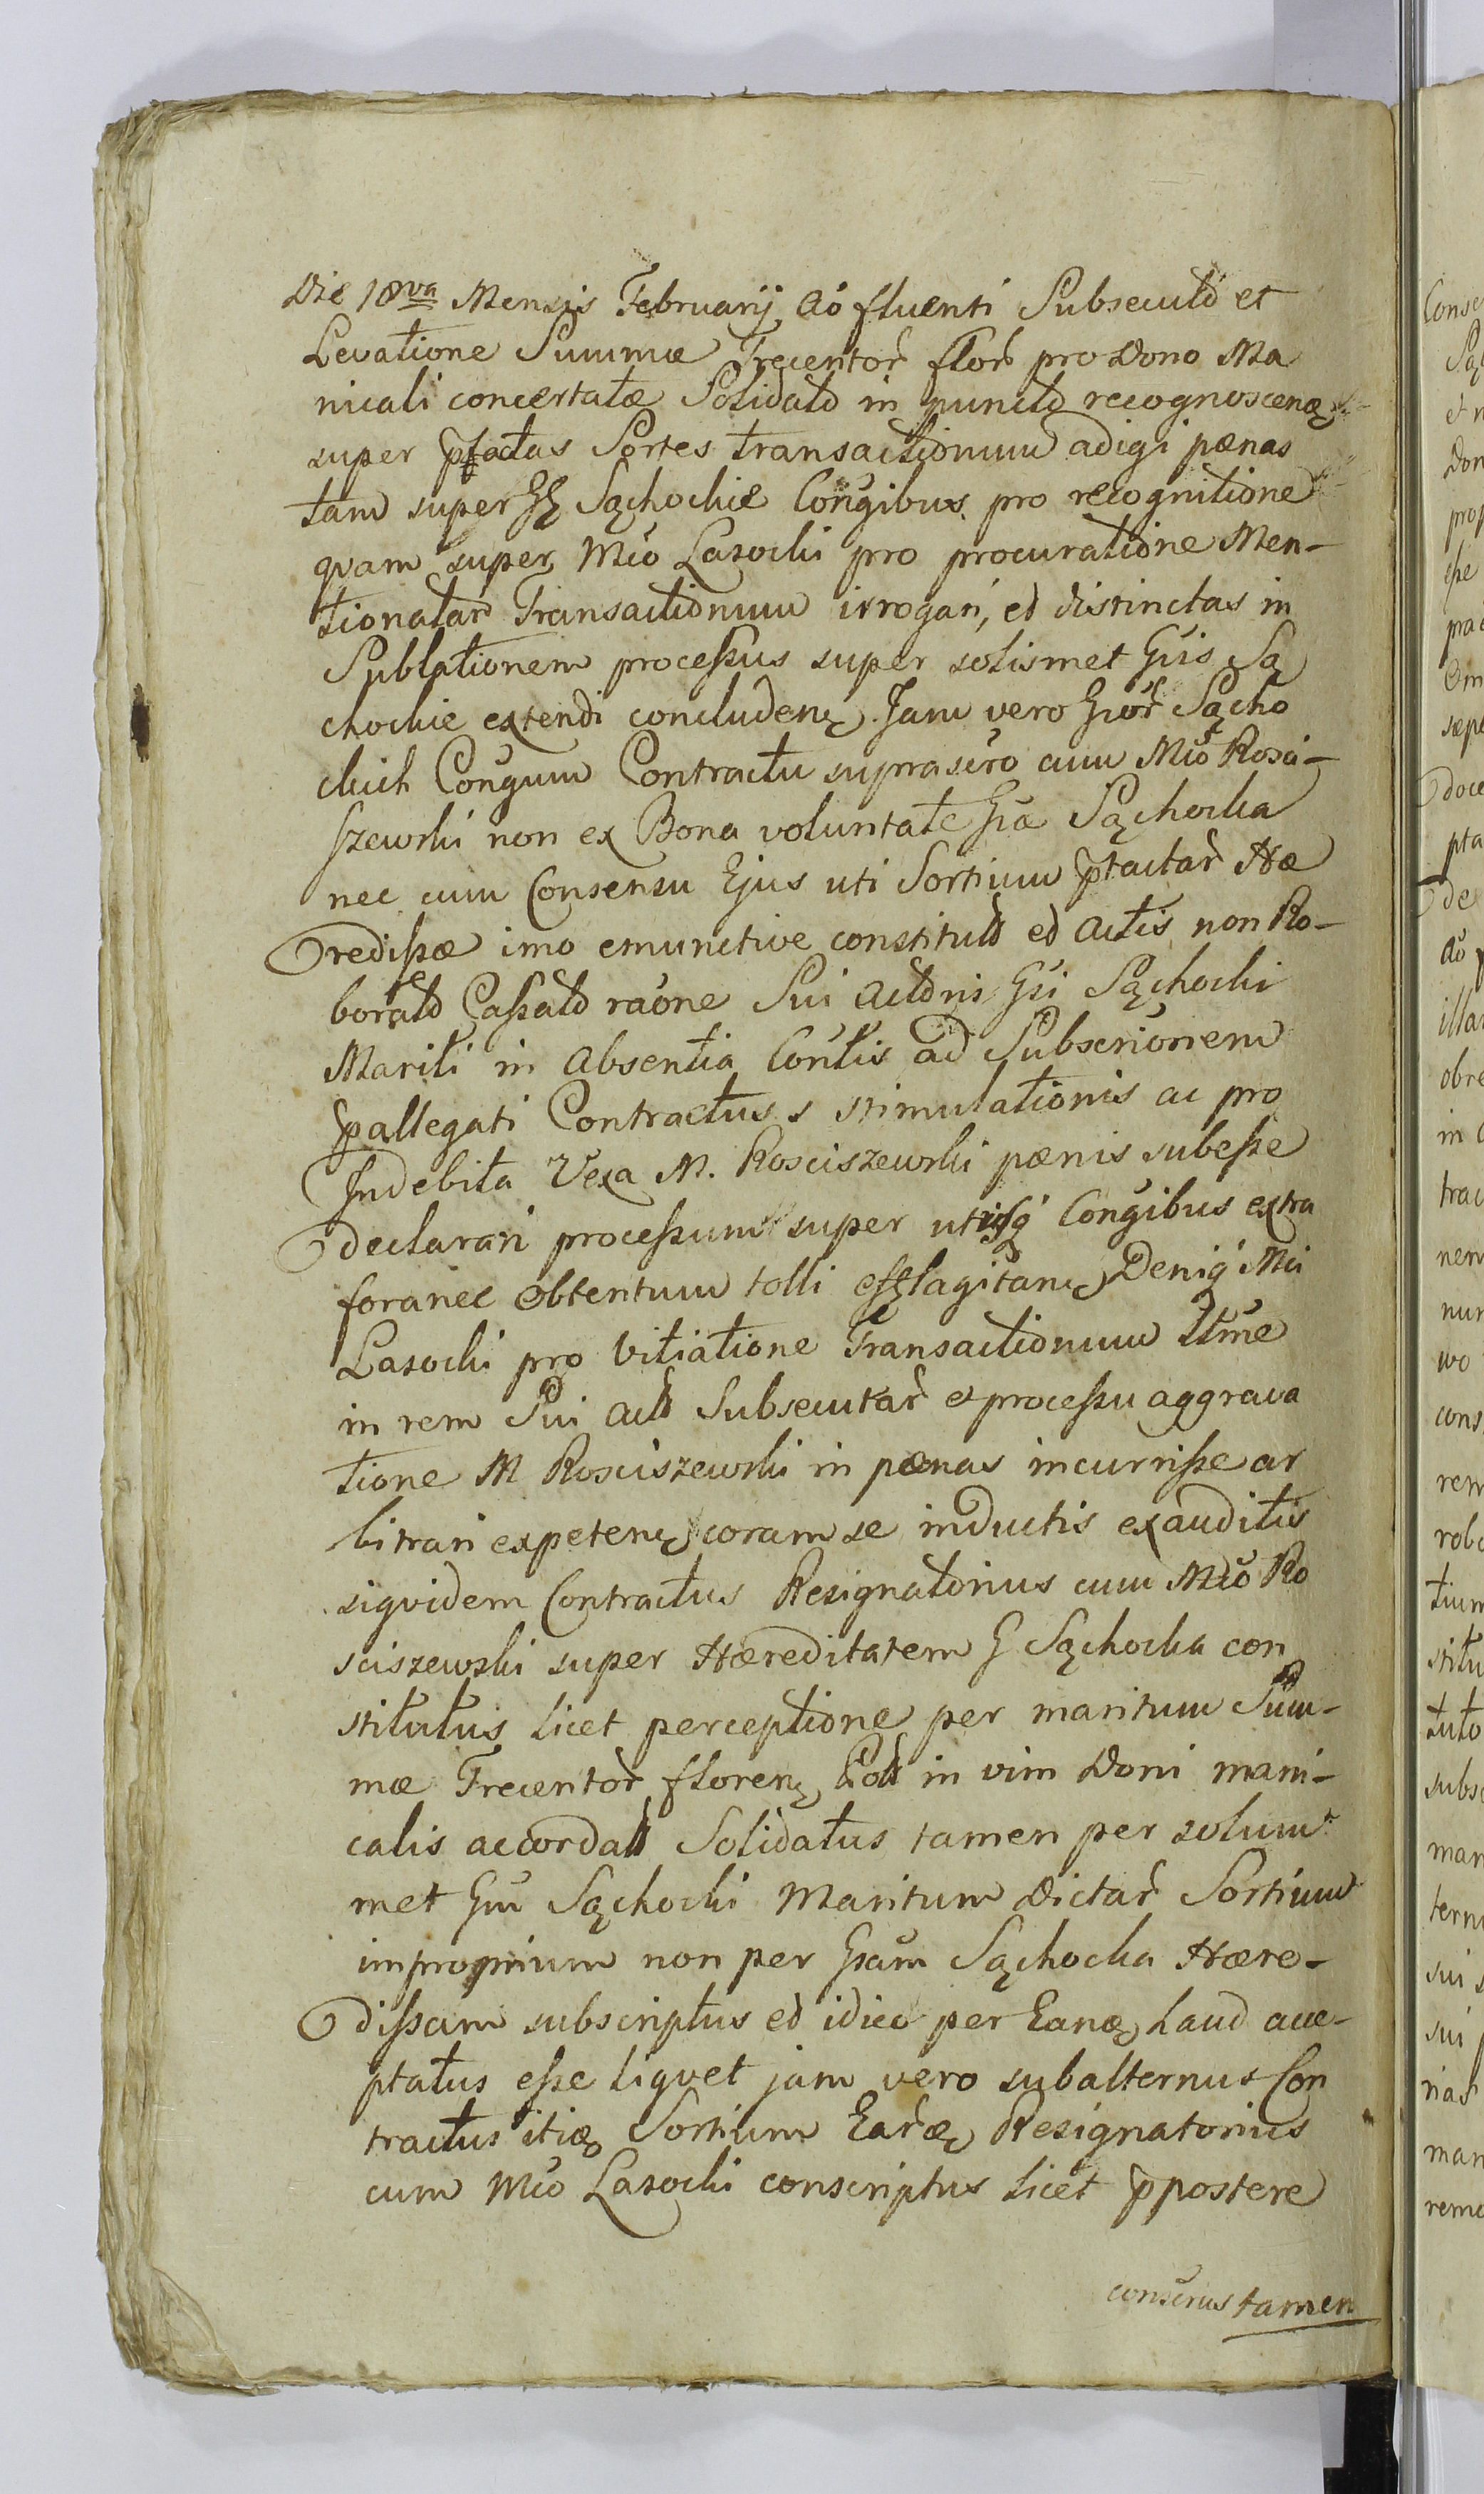 Die 18va Mensis Februarij Aõ fluenti Subsecuto et
Levatione Summæ Trecentor̃ flor̃ pro Dono Ma
nicali concertatæ Solidato in puncto recognoscenæ
super ptactas Sortes transactionum adigi pænas
tam super Sąchockie Conḡibus pro recognitione
quam super Mc̃o Lasocki pro procuratione Men-
tionatar̃ Transactionum irrogari, et distinctas in
Sublationem processus super solismet Gsis Są
chockie extendi concluden. Jam vero Gsor̃ Sącho
ckich Conḡum Contractu suprascr̃o cum Mc̃o Rosci-
szewski non ex Bona voluntate Gsæ Sąchocka
nec cum Consensu Ejus uti Sortium ptactar̃ Hæ
redissæ imo emunctive constituto et Actis non Ro-
borato Cassato raõne Sui Actoris Gsi Sąchocki
Mariti in Absentia Con̄tis ad Subscriõnem
pallegati Contractus stimulationis ac pro
Indebita Vexa M. Rosciszewski pænis subesse
declarari processum super utrisq̃ Conḡibus extra
foranee obtentum tolli efflagitan, Deniq̃ Mci
Lasocki pro Vitiatione Transactionum ltm̃e
in rem Sui Act̃ Subsecutar̃ et processu aggrava
tione M Rosciszewski in pænas incurrisse ar
bitrari expeten coram se inductis exauditis
siqvidem Contractus Resignatorius cum Mc̃o Ro
sciszewski super Hæreditatem G Sąchocka con
stitutus licet perceptione per maritum Sum-
mæ Trecentor̃ floren Pol̃ in vim Doni mani-
calis accordat̃ Solidatus tamen per solum
met Gsm Sąchocki Maritum Dictar̃ Sortium
improprium non per Gsam Sąchocka Hære-
dissam subscriptus et ideo per Eanæ haud acce-
ptatus esse liqvet jam vero subalternus Con
tractus itiæ Sortium Ear̃æ Resignatorius
cum Mc̃o Lasocki conscriptus licet ppostere
conscr̃us tamen